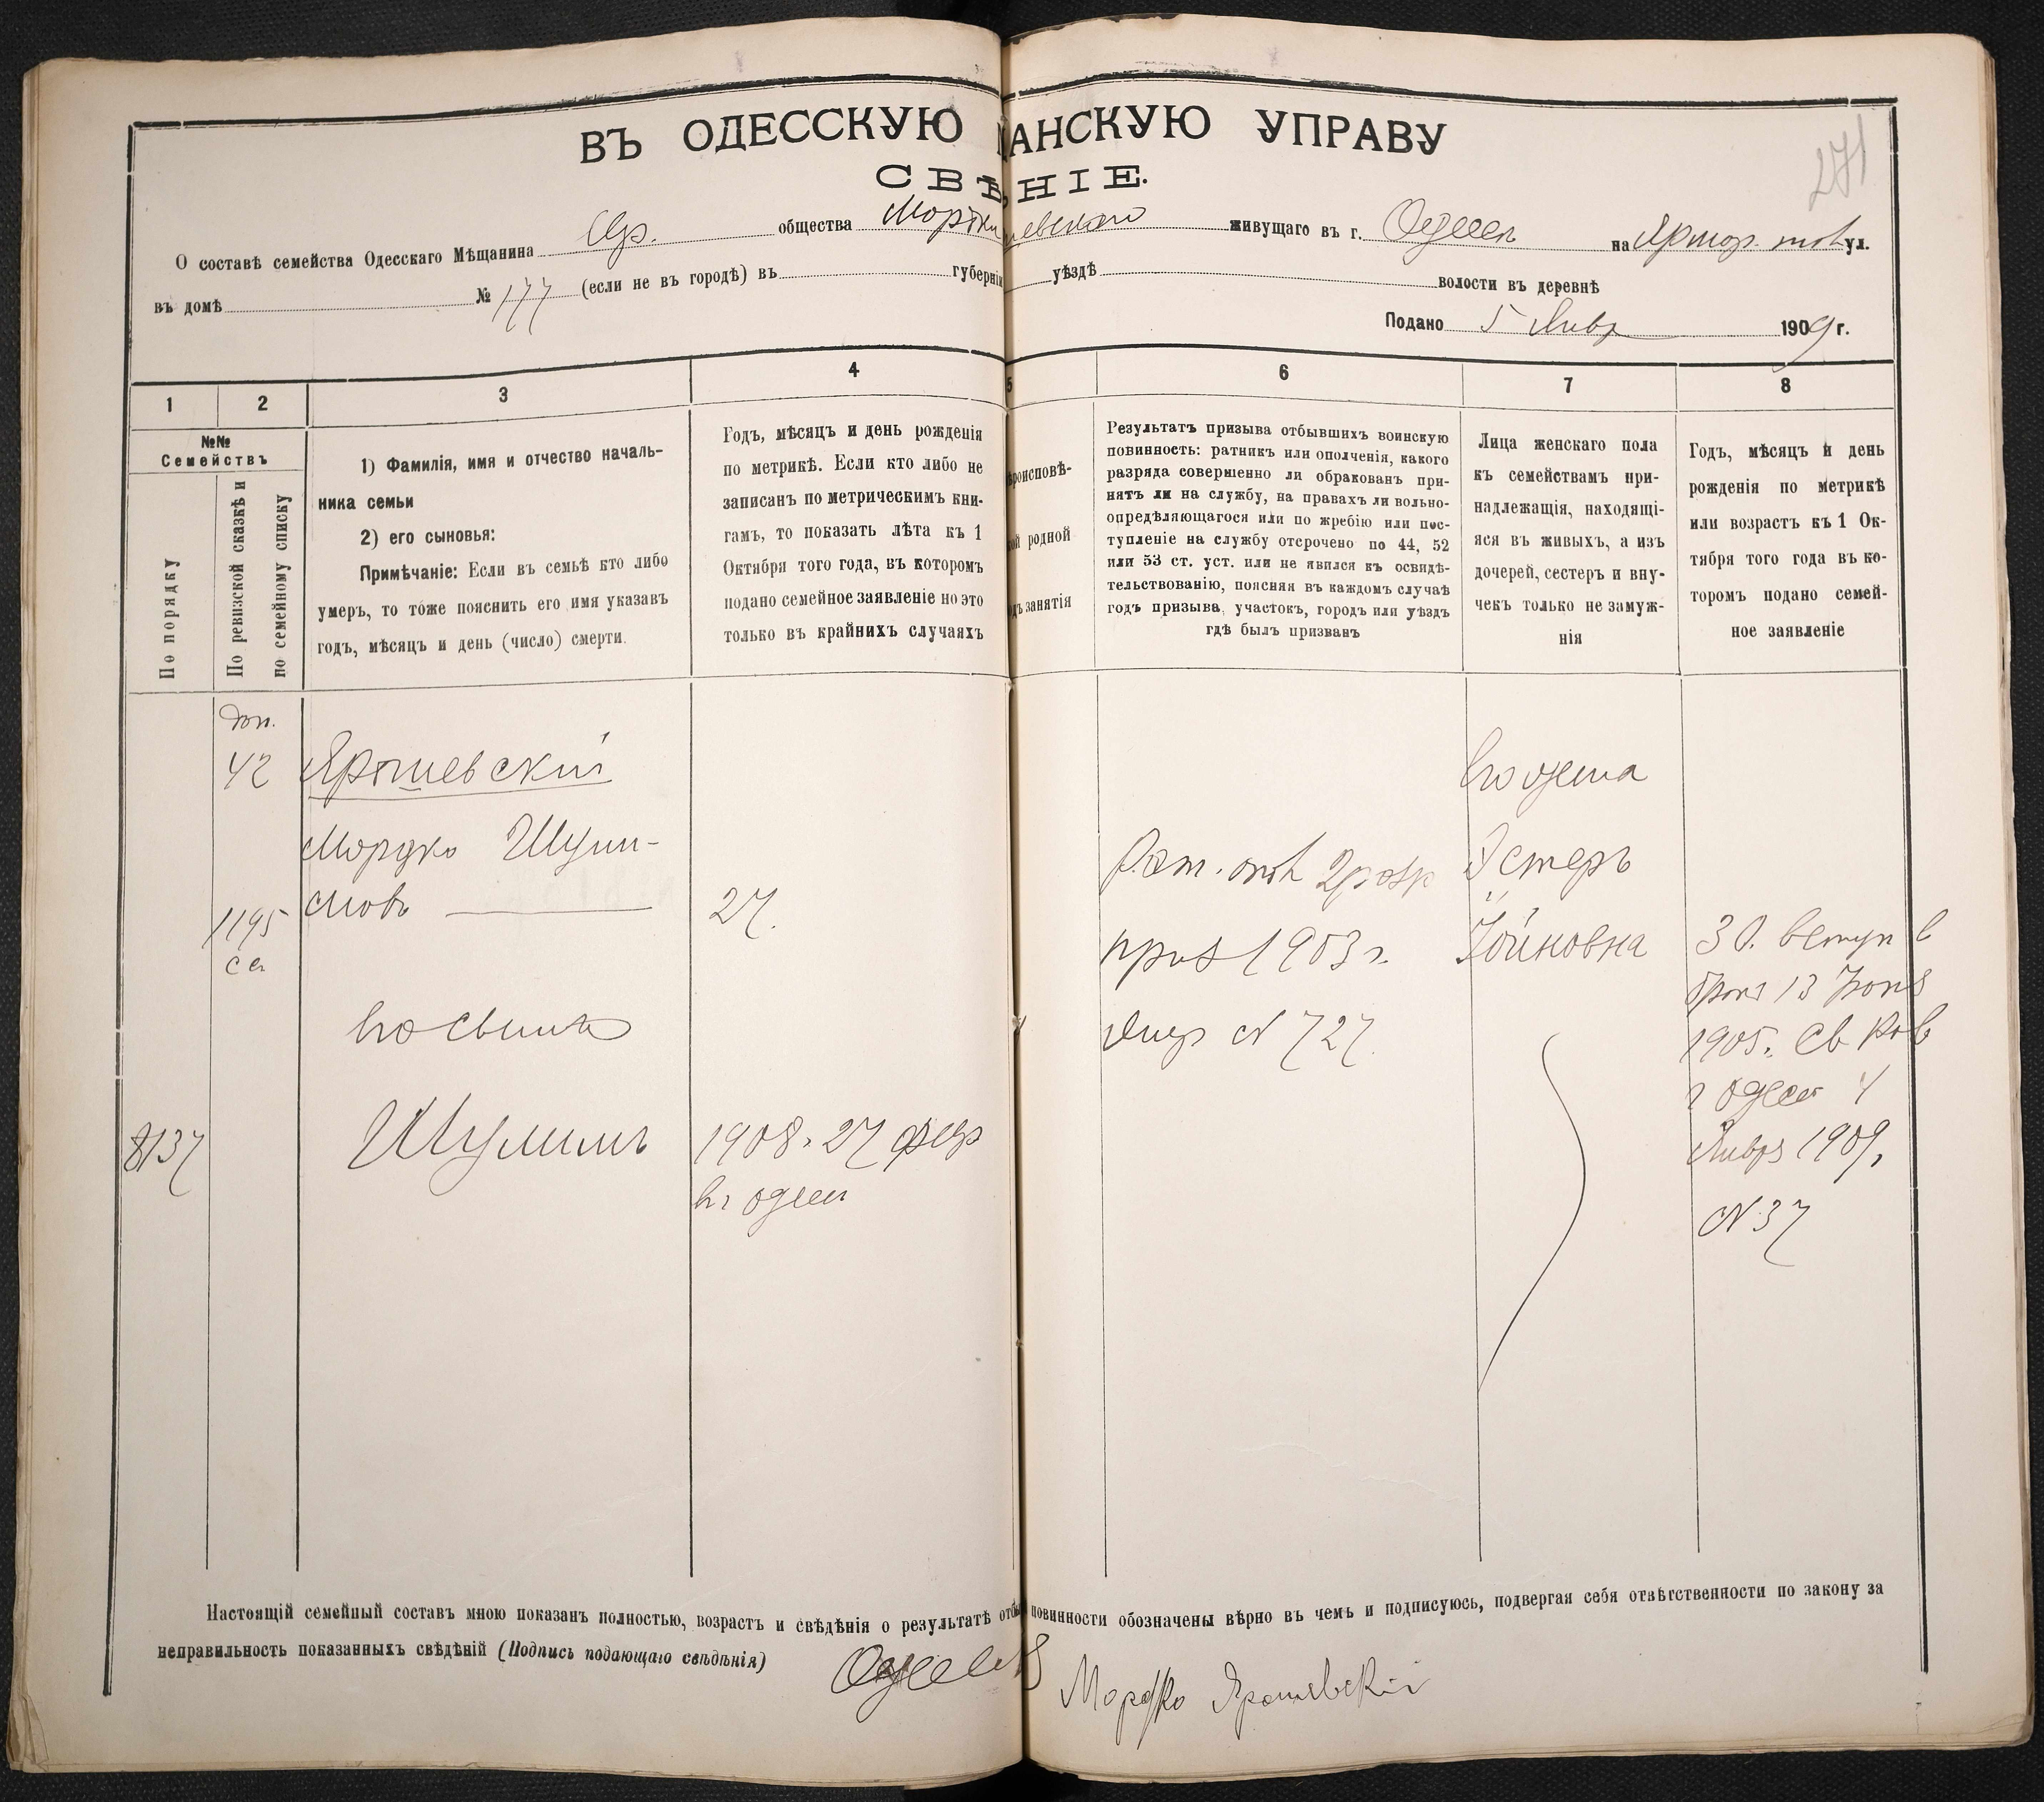 ВЪ ОДЕССКУЮ АНСКУЮ УПРАВУ
СВѢНІЕ.
271
О составѣ семейства Одесскаго Мѣщанина Евр. общества живущаго въ г. Одессѣ на ул.
въ домѣ № 177 (если не въ городѣ) въ губерніи уѣздѣ волости въ деревнѣ
Подано 5 Янвр 1909 г.
1 2 3 4 5 6 7 8
№№
Семействъ
По порядку
По ревизской сказкѣ и
по семейному списку
1) Фамилія, имя и отчество началь-
ника семьи
2) его сыновья:
Примѣчаніе: Если въ семьѣ кто либо
умеръ, то тоже пояснить его имя указавъ
годъ, мѣсяцъ и день (число) смерти.
Годъ, мѣсяцъ и день рожденія
по метрикѣ. Если кто либо не
записанъ по метрическимъ кни-
гамъ, то показать лѣта къ 1
Октября того года, въ которомъ
подано семейное заявленіе но это
только въ крайнихъ случаяхъ
роисповѣ-
ой родной
дъ занятія
Результатъ призыва отбывшихъ воинскую
повинность: ратникъ или ополченія, какого
разряда совершенно ли обракованъ при-
нятъ ли на службу, на правахъ ли вольно-
опредѣляющагося или по жребію или пос-
тупленіе на службу отсрочено по 44, 52
или 53 ст. уст. или не явился къ освидѣ-
тельствованію, поясняя въ каждомъ случаѣ
годъ призыва, участокъ, городъ или уѣздъ
гдѣ былъ призванъ
Лица женскаго пола
къ семействамъ при-
надлежащія, находящі-
яся въ живыхъ, а изъ
дочерей, сестеръ и вну-
чекъ только не замуж-
нія
Годъ, мѣсяцъ и день
рожденія по метрикѣ
или возрастъ къ 1 Ок-
тября того года въ ко-
торомъ подано семей-
ное заявленіе
доп.
42
1195
8137
Ярошевскій
Мордко Шули-
мовъ
Его сынъ
Шулимъ
27.
1908. 27 февр
въ Одесс
Рат. опол 2 разр
приз 1903 г.
№ 727.
Его жена
Эстеръ
Іойновна
30. вступ в
бракъ 13 Іюня
1905. Св Рав
г Одесс 4
Января 1909.
№ 37
Настоящій семейный составъ мною показанъ полностью, возрастъ и свѣдѣнія о результатѣ отбы повинности обозначены вѣрно въ чемъ и подписуюсь, подвергая себя отвѣтственности по закону за
неправильность показанныхъ свѣдѣній (Подпись подающаго свѣдѣнія)
Мордко Ярошевскій